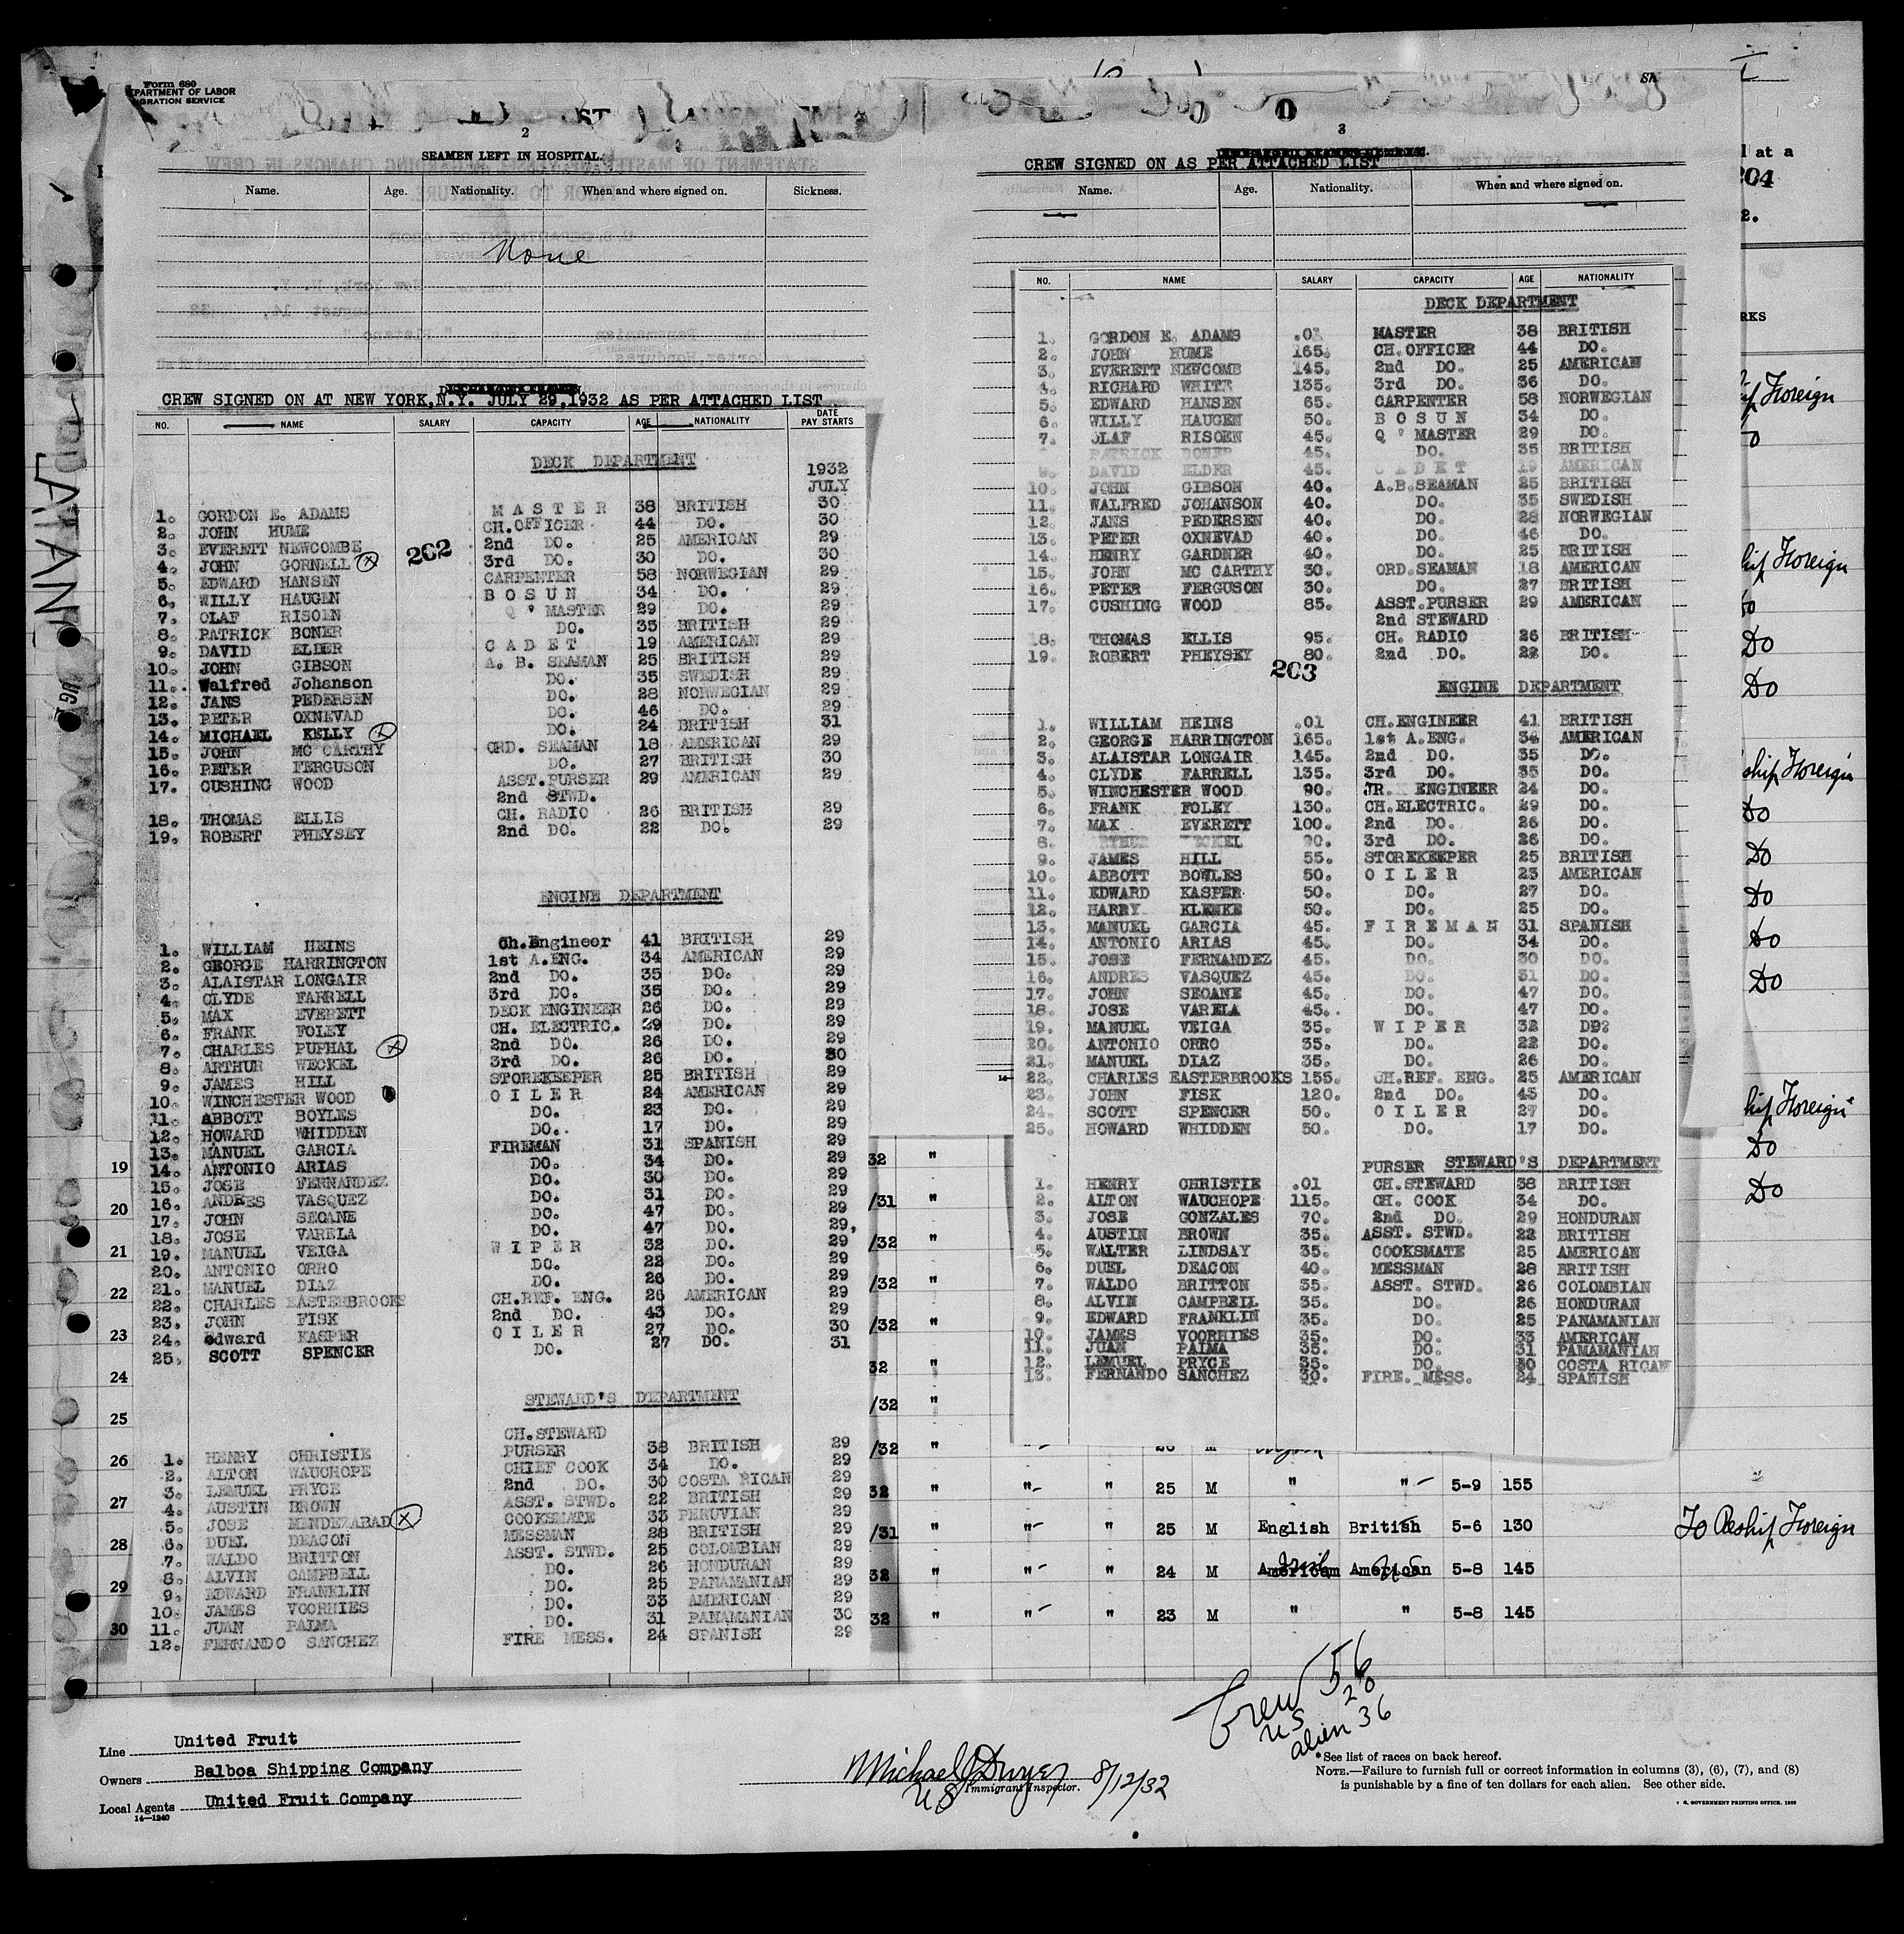 Form 680
DEPARTMENT OF LABOR
IMMIGRATION SERVICE
2
SEAMEN LEFT IN HOSPITAL.
Name. Age. Nationality. When and where signed on. Sickness.
None
CREW SIGNED ON AT NEW YORK,N.Y. JULY 29,1932 AS PER ATTACHED LIST
NO. NAME SALARY CAPACITY AGE NATIONALITY DATE PAY STARTS
DECK DEPARTMENT 1932
JULY
1. GORDON E. ADAMS MASTER 38 BRITISH 30
2. JOHN HUME CH.OFFICER 44 DO. 30
3. EVERETT NEWCOMBE 2nd DO. 25 AMERICAN 29
262
4. JOHN GORNELL X 3rd DO. 30 DO. 30
5. EDWARD HANSEN CARPENTER 58 NORWEGIAN 29
6. WILLY HAUGEN BOSUN 34 DO. 29
7. OLAF RISOEN Q ' MASTER 29 DO. 29
8. PATRICK BONER DO. 35 BRITISH 29
9. DAVID ELDER CADET 19 AMERICAN 29
10. JOHN GIBSON A. B. SEAMAN 25 BRITISH 29
11. Walfred Johanson DO. 35 SWEDISH 29
12. JANS PEDERSEN DO. 28 NORWEGIAN 29
13. PETER OXNEVAD DO. 46 DO. 29
14. MICHAEL KELLY X DO. 24 BRITISH 31
15. JOHN MC CARTHY ORD. SEAMAN 18 AMERICAN 29
16. PETER FERGUSON DO. 27 BRITISH 30
17. CUSHING WOOD ASST.PURSER 29 AMERICAN 29
2nd STWD.
18. THOMAS ELLIS CH. RADIO 26 BRITISH 29
19. ROBERT PHEYSEY 2nd DO. 22 DO. 29
ENGINE DEPARTMENT
1. WILLIAM HEINS Ch.Engineer 41 BRITISH 29
2. GEORGE HARRINGTON 1st A.ENG. 34 AMERICAN 29
3. ALAISTAR LONGAIR 2nd DO. 35 DO. 29
4. CLYDE FARRELL 3rd DO. 35 DO. 29
5. MAX EVERETT DECK ENGINEER 26 DO. 29
6. FRANK FOLEY CH. ELECTRIC. 29 DO. 29
7. CHARLES PUPHAL X 2nd DO. 26 DO. 29
8. ARTHUR WECKEL 3rd DO. 26 DO. 30
9. JAMES HILL STOREKEEPER 25 BRITISH 29
10. WINCHESTER WOOD OILER 24 AMERICAN 29
11. ABBOTT BOYLES DO. 23 DO. 29
12. HOWARD WHIDDEN DO. 17 DO. 29
13. MANUEL GARCIA FIREMAN 31 SPANISH 29
14. ANTONIO ARIAS DO. 34 DO. 29
15. JOSE FERNANDEZ DO. 30 DO. 29
16. ANDRES VASQUEZ DO. 31 DO. 29
17. JOHN SEOANE DO. 47 DO. 29
18. JOSE VARELA DO. 47 DO. 29,
19. MANUEL VEIGA WIPER 32 DO. 29
20. ANTONIO ORRO DO. 22 DO. 29
21. MANUEL DIAZ DO. 26 DO. 29
22. CHARLES EASTERBROOKS CH.REF. ENG. 26 AMERICAN 29
23. JOHN FISK 2nd DO. 43 DO. 29
24. edward KASPER OILER 27 DO. 30
25. SCOTT SPENCER DO. 27 DO. 31
STEWARD'S DEPARTMENT
CH.STEWARD
1. HENRY CHRISTIE PURSER 38 BRITISH 29
2. ALTON WAUCHOPE CHIEF COOK 34 DO. 29
3. LEMUEL PRYCE 2nd DO. 30 COSTA RICAN 29
4. AUSTIN BROWN ASST. STWD. 22 BRITISH 29
5. JOSE MENDEZABAD X COOKSMATE 33 PERUVIAN 29
6. DUEL DEACON MESSMAN 28 BRITISH 29
7. WALDO BRITTON ASST. STWD. 25 COLOMBIAN 29
8. ALVIN CAMPBELL DO. 26 HONDURAN 29
9. EDWARD FRANKLIN DO. 25 PANAMANIAN 29
10. JAMES VOORHIES DO. 33 AMERICAN 29
11. JUAN PALMA DO. 31 PANAMANIAN 30
12. FERNANDO SANCHEZ FIRE MESS. 24 SPANISH 29
3
CREW SIGNED ON AS PER ATTACHED LIST
Name. Age. Nationality. When and where signed on.
NO. NAME SALARY CAPACITY AGE NATIONALITY
DECK DEPARTMENT
1. GORDON E. ADAMS .01 MASTER 38 BRITISH
2. JOHN HUME 165. CH.OFFICER 44 DO.
3. EVERETT NEWCOMB 145. 2nd DO. 25 AMERICAN
4. RICHARD WHITE 135. 3rd DO. 36 DO.
5. EDWARD HANSEN 65. CARPENTER 58 NORWEGIAN
6. WILLY HAUGEN 50. BOSUN 34 DO.
7. OLAF RISOEN 45. Q ' MASTER 29 DO.
PATRICK BONER 45. DO. 35 BRITISH
9. DAVID ELDER 45. CADET 19 AMERICAN
10. JOHN GIBSON 40. A.B.SEAMAN 25 BRITISH
11. WALFRED JOHANSON 40. DO. 35 SWEDISH
12. JANS PEDERSEN 40. DO. 28 NORWEGIAN
13. PETER OXNEVAD 40. DO. 46 DO.
14. HENRY GARDNER 40. DO. 25 BRITISH
15. JOHN MC CARTHY 30. ORD.SEAMAN 18 AMERICAN
16. PETER FERGUSON 30. DO. 27 BRITISH
17. CUSHING WOOD 85. ASST.PURSER 29 AMERICAN
2nd STEWARD
18. THOMAS ELLIS 95. CH. RADIO 26 BRITISH
19. ROBERT PHEYSEY 80. 2nd DO. 22 DO.
203
ENGINE DEPARTMENT
1. WILLIAM HEINS .01 CH.ENGINEER 41 BRITISH
2. GEORGE HARRINGTON 165. 1st A.ENG. 34 AMERICAN
3. ALAISTAR LONGAIR 145. 2nd DO. 35 DO.
4. CLYDE FARRELL 135. 3rd DO. 35 DO.
5. WINCHESTER WOOD 90. JR. ENGINEER 24 DO.
6. FRANK FOLEY 130. CH.ELECTRIC. 29 DO.
7. MAX EVERETT 100. 2nd DO. 26 DO.
8. 90. 3rd DO. 26 DO.
9. JAMES HILL 55. STOREKEEPER 25 BRITISH
10. ABBOTT BOWLES 50. OILER 23 AMERICAN
11. EDWARD KASPER 50. DO. 27 DO.
12. HARRY KLENKE 50. DO. 25 DO.
13. MANUEL GARCIA 45. FIREMAN 31 SPANISH
14. ANTONIO ARIAS 45. DO. 34 DO.
15. JOSE FERNANDEZ 45. DO. 30 DO.
16. ANDRES VASQUEZ 45. DO. 31 DO.
17. JOHN SEOANE 45. DO. 47 DO.
18. JOSE VARELA 45. DO. 47 DO.
19. MANUEL VEIGA 35. WIPER 32 DO.
20. ANTONIO ORRO 35. DO. 22 DO.
21. MANUEL DIAZ 35. DO. 26 DO.
22. CHARLES EASTERBROOKS 155. CH.REF. ENG. 25 AMERICAN
23. JOHN FISK 120. 2nd DO. 43 DO.
24. SCOTT SPENCER 50. OILER 27 DO.
25. HOWARD WHIDDEN 50. DO. 17 DO.
PURSER STEWARD'S DEPARTMENT
1. HENRY CHRISTIE .01 CH.STEWARD 38 BRITISH
2. ALTON WAUCHOPE 115. CH. COOK 34 DO.
3. JOSE GONZALES 70. 2nd DO. 29 HONDURAN
4. AUSTIN BROWN 35. ASST. STWD. 22 BRITISH
5. WALTER LINDSAY 35. COOKSMATE 25 AMERICAN
6. DUEL DEACON 40. MESSMAN 28 BRITISH
7. WALDO BRITTON 35. ASST. STWD. 26 COLOMBIAN
8. ALVIN CAMPBELL 35. DO. 26 HONDURAN
9. EDWARD FRANKLIN 35. DO. 25 PANAMANIAN
10. JAMES VOORHIES 35. DO. 33 AMERICAN
11. JUAN PALMA 35. DO. 31 PANAMANIAN
12. LEMUEL PRYCE 35. DO. 30 COSTA RICAN
13. FERNANDO SANCHEZ 30. FIRE. MESS. 24 SPANISH
19 32 "
20 /31 "
21 /32 "
22 /32 "
23 /32 "
24 32 "
25 /32 "
26 /32 "
27 32 " " " 25 M " " 5-9 155
28 /31 " " " 25 M English British 5-6 130 To Reship Foreign
29 32 " " " 24 M American American 5-8 145
30 32 " " " 23 M " " 5-8 145
at a
204
2.
RKS
Foreign
ship Foreign
Do
Do
ship Foreign
Do
Do
Do
Do
Do
ship Foreign
Do
Do
Crew 56
US 20
alien 36
Line United Fruit
Owners Balboa Shipping Company
Local Agents United Fruit Company
14—1240
Michael J Dwyer 8/12/32
US Immigrant Inspector.
*See list of races on back hereof.
NOTE.—Failure to furnish full or correct information in columns (3), (6), (7), and (8)
is punishable by a fine of ten dollars for each alien. See other side.